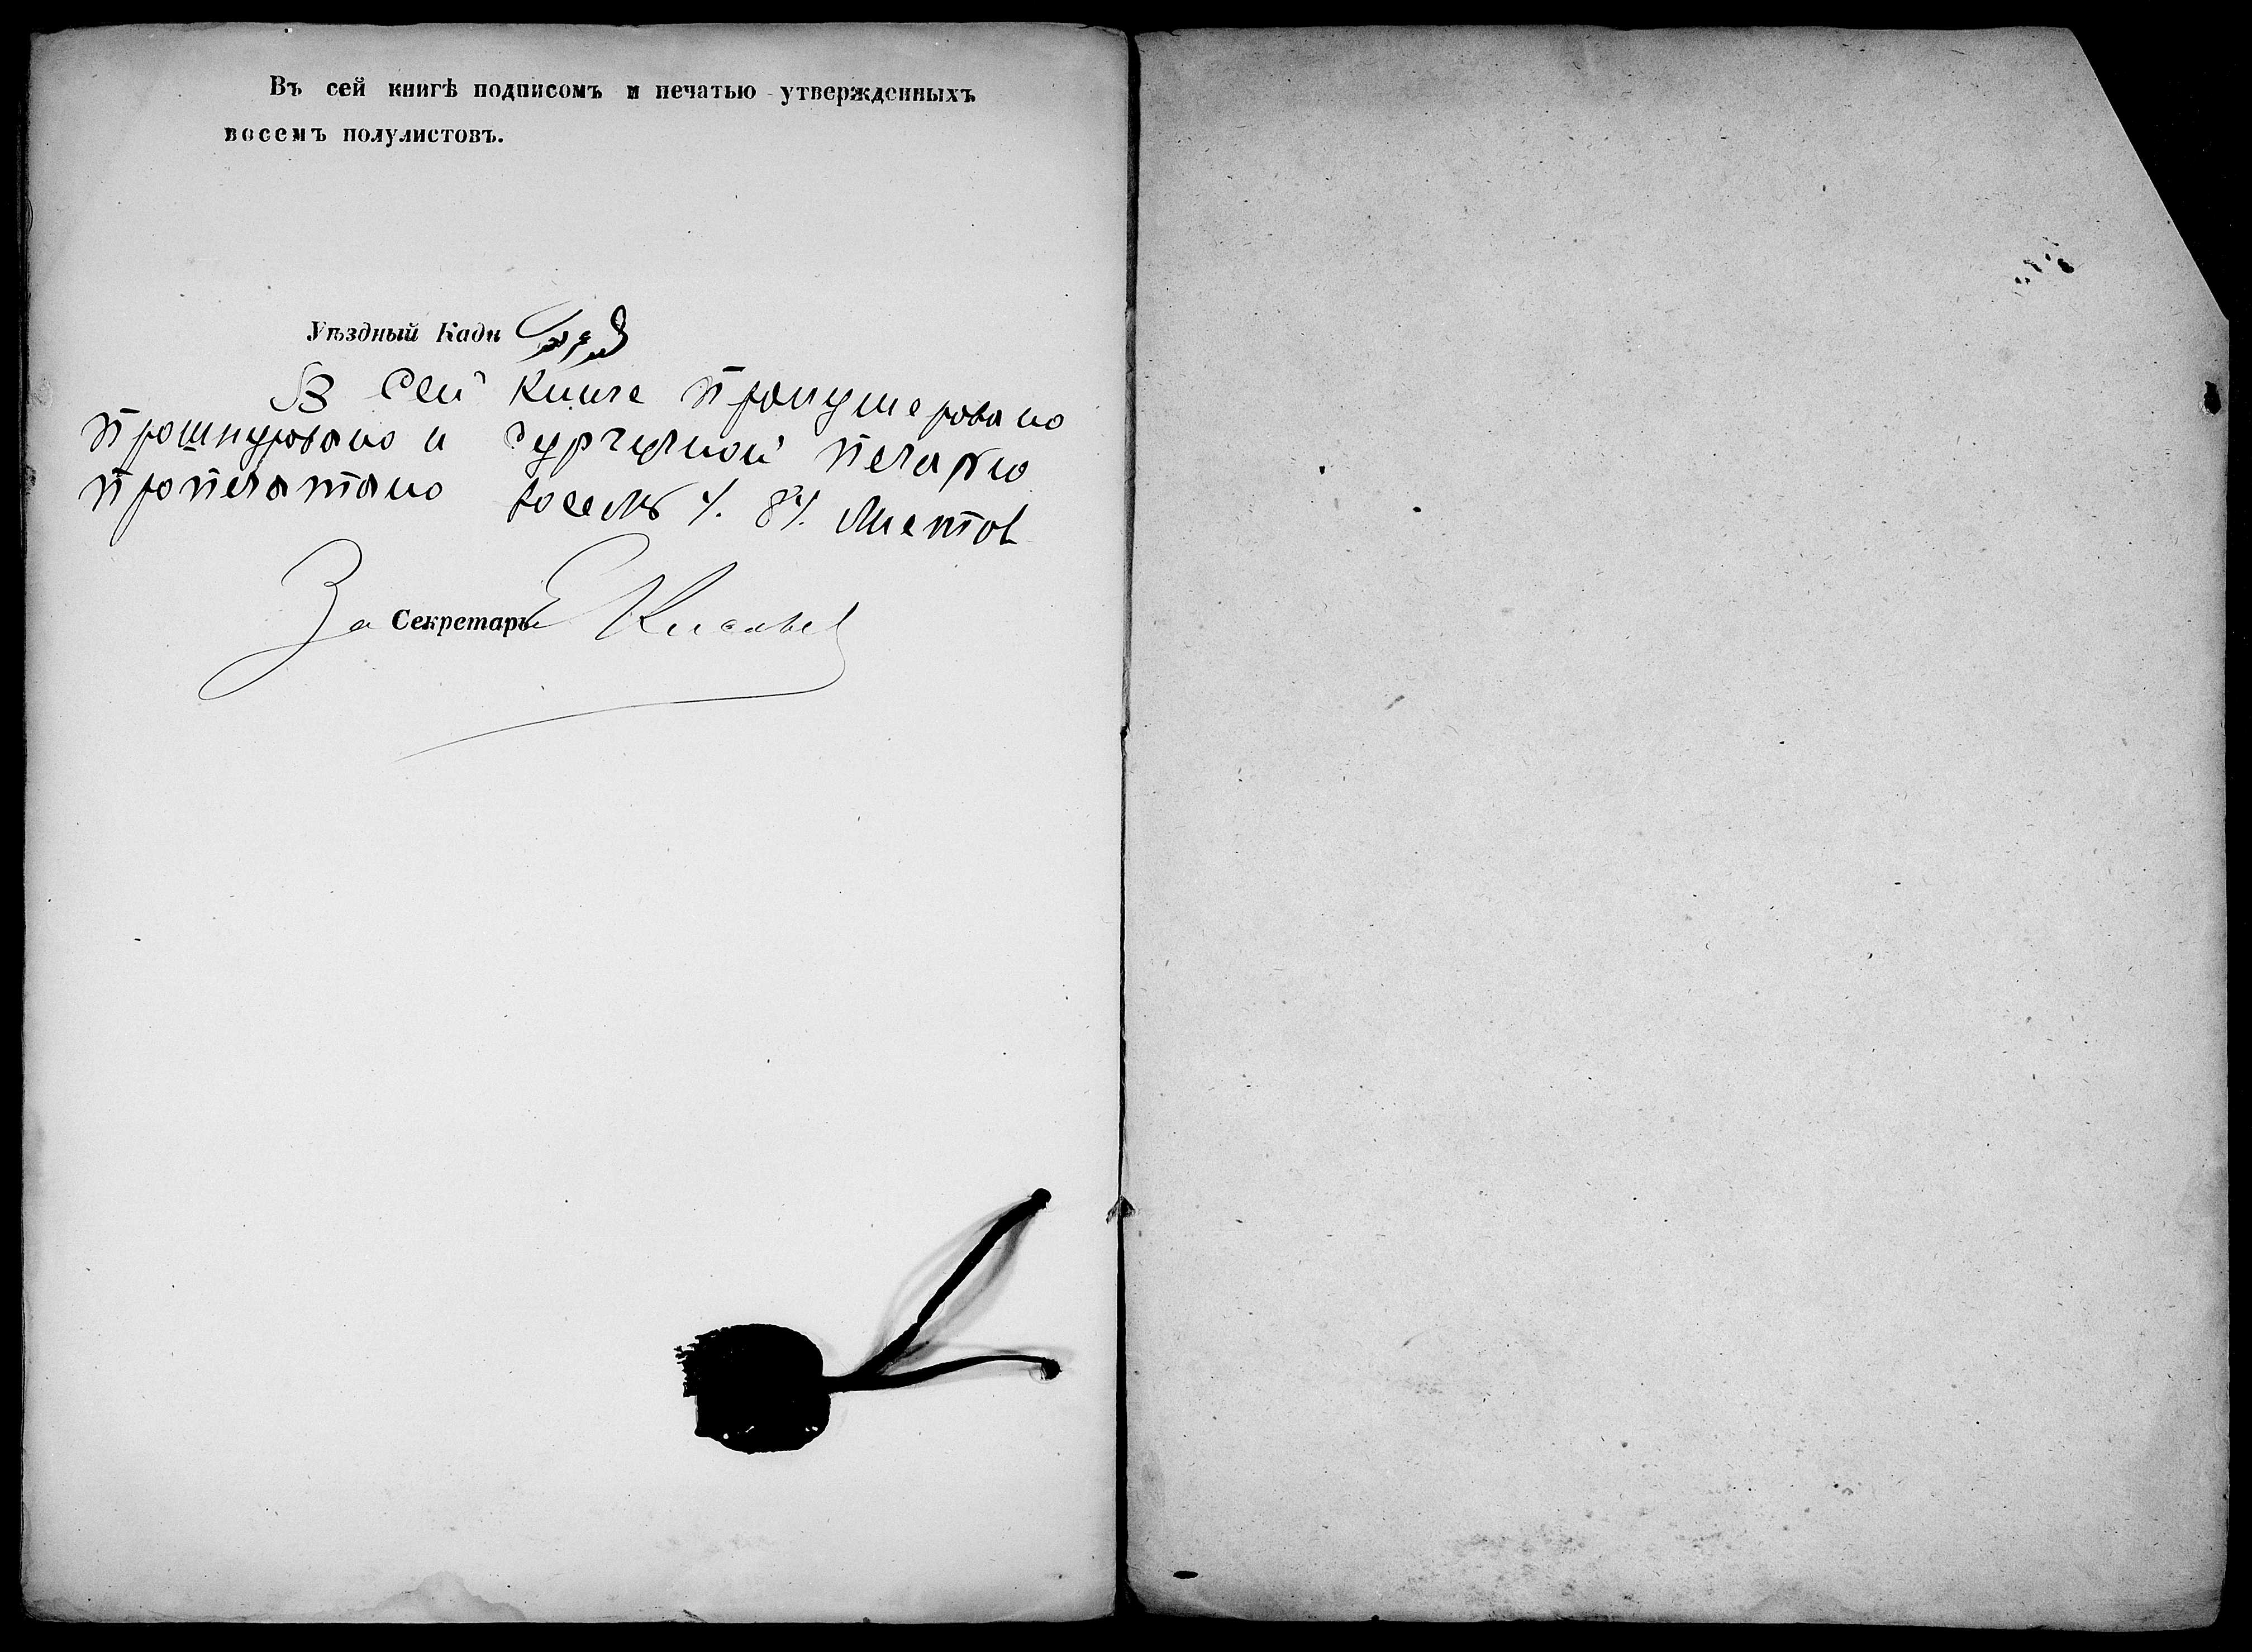 Въ сей книгѣ подписомъ и печатью утвержденныхъ
восемъ полулистовъ.
Уѣздный Кади
В сей книге пронумеровано
прошнуровано и сургучной печатю
пропечатано восемь /. 8/. Листов
За Секретарь